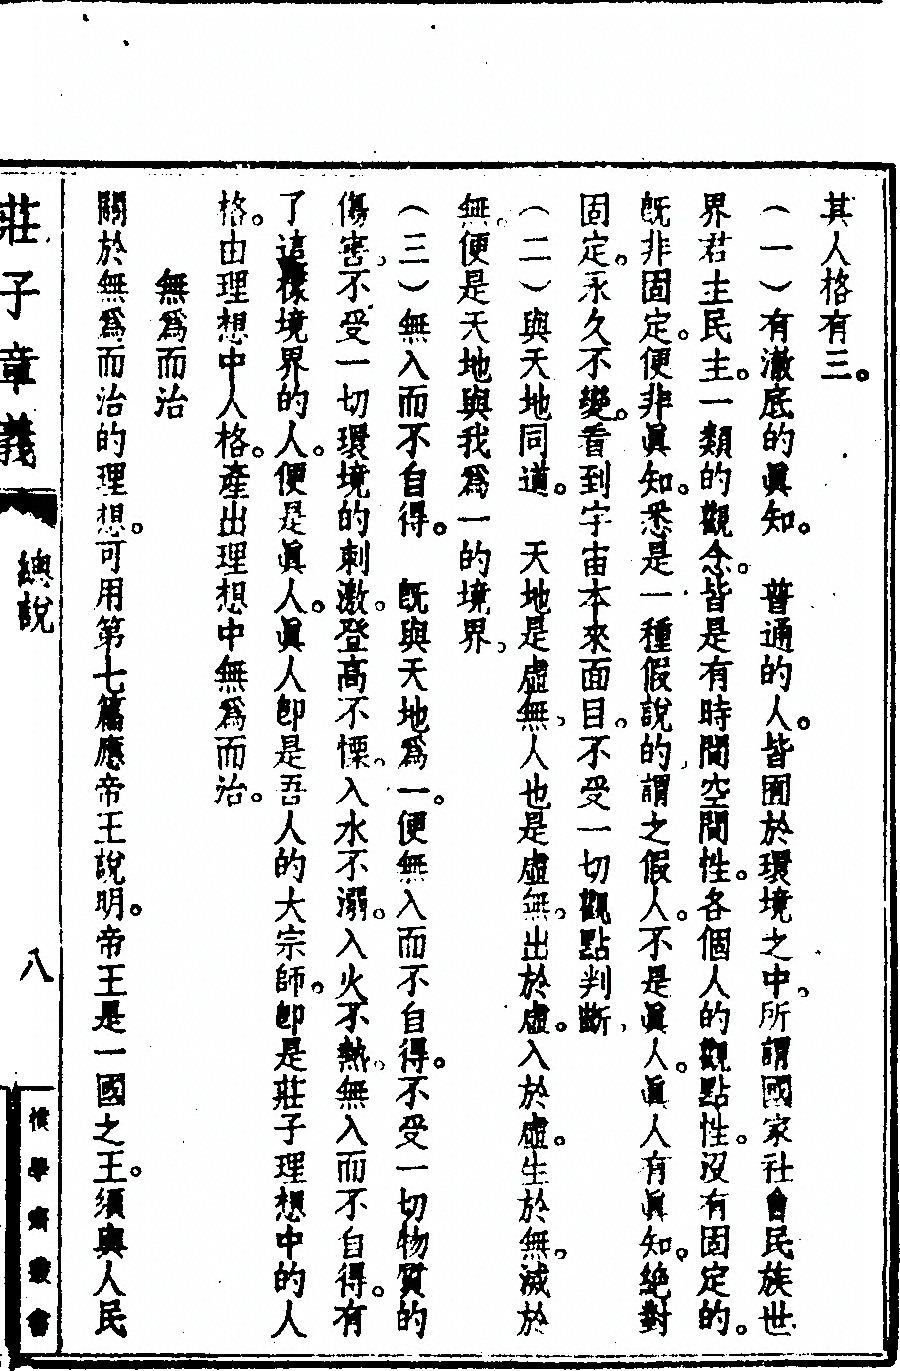 其人格有三。
（一）有澈底的眞知。　普通的人。皆囿於環境之中。所謂國家社會民族世
界君主民主。一類的觀念。皆是有時間空間性。各個人的觀點性。沒有固定的。
旣非固定。便非眞知。悉是一種假說的謂之假人。不是眞人。眞人有眞知。絕對
固定。永久不變。看到宇宙本來面目。不受一切觀點判斷。
（二）與天地同道。　天地是虛無。人也是虛無。出於虛。入於虛。生於無。滅於
無。便是天地與我爲一的境界。
（三）無入而不自得。　旣與天地爲一。便無入而不自得。不受一切物質的
傷害。不受一切環境的刺激。登高不慄。入水不溺。入火不熱。無入而不自得。有
了這樣境界的人。便是眞人。眞人卽是吾人的大宗師。卽是莊子理想中的人
格。由理想中人格。產出理想中無爲而治。
無爲而治
關於無爲而治的理想。可用第七篇應帝王說明。帝王是一國之王。須與人民
莊子章義
總說
八
樸學齋叢書